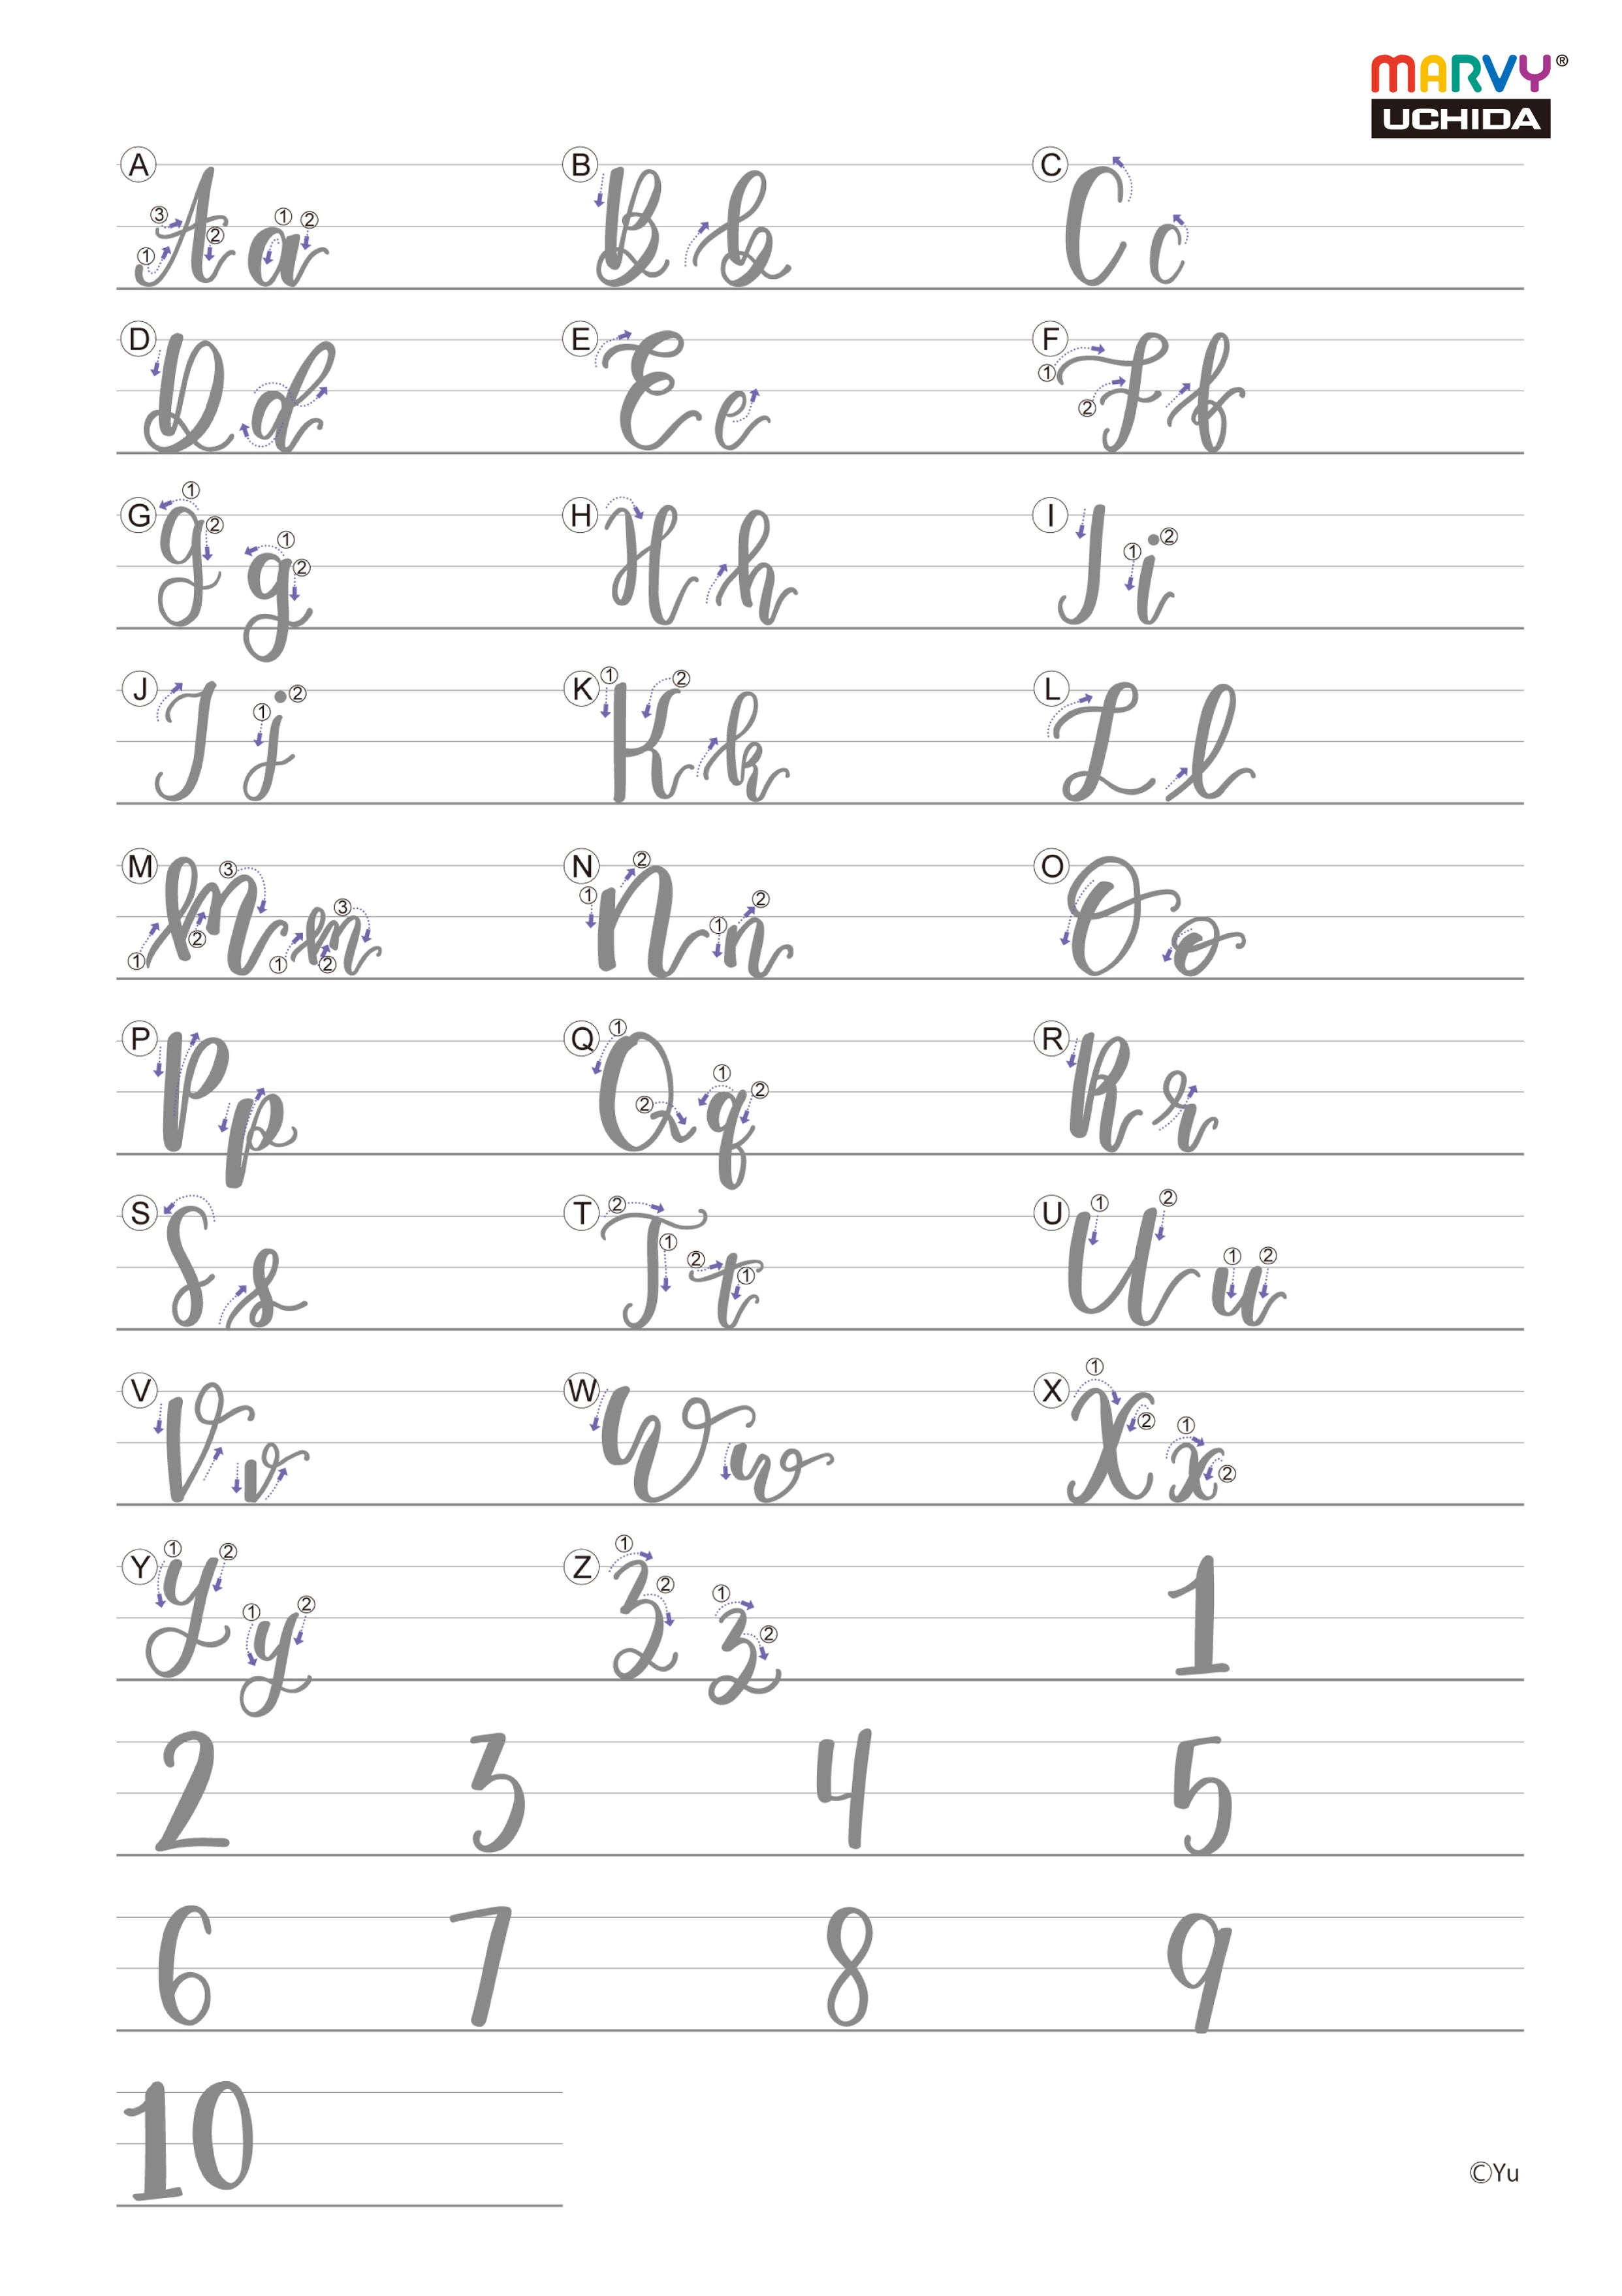 MARVY®
UCHIDA
A ③ ① ② A ① ② a B B b C C c
D D d E E e F ① ② F f
G ① ② G ① ② g H H h I I ① ② i
J J ① ② j K ① ② K k L L l
M ① ② ③ M ① ② ③ m N ① ② N ① ② n O O o
P P p Q ① ② Q ① ② q R R r
S S s T ② ① T ② ① t U ① ② U ① ② u
V V v W W w X ① ② X ① ② x
Y ① ② Y ① ② y Z ① ② Z ① ② z 1
2 3 4 5
6 7 8 9
10
©Yu